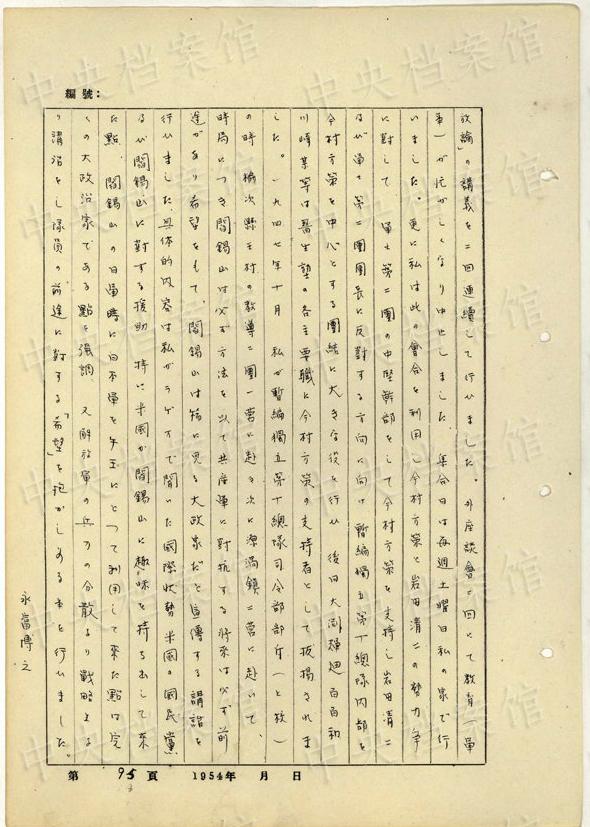 編號：
政論」の講義を二回連續して行いました。外座談會二回にて教育（軍
事）が忙がしくなり中止しました。集合日は毎週土曜日私の家で行
いました。更に私は此の會合を利用し今村方策と岩田清一の勢力爭
に対して軍士第二團の中堅幹部をして今村方策を支持し岩田清一
及び軍士第二團團長に反對する方向に向け暫編獨立第十總隊内部を
今村方策を中心とする團結に大きな役を行い後日大
川崎某等は養生塾の各主要職に今村方策の支持者として抜擢されま
した。一九四七年十月私が暫編獨立第十總隊司令部部附（
の時楡次縣王村の教導二團一營に赴き次に潦渦鎮二營に赴いて、
時局につき閻錫山は必ず方法を以て共産軍に對抗する将来は必ず前
途があり希望をもて、閻錫山は稀に見る大政家だと宣傳する講話を
行いました具体的内容は私がラヂオで聞いた國際状勢米國の國民黨
及び閻錫山に對する援助特に米國が閻錫山に趣味を持ち出して来
た點、閻錫山の日軍時に日本軍を
の大政治家である點を強調又解放軍の兵力の分散より戦略上
り講話をし隊員の前途に對する「希望」を抱かしめる事を行いました。
永富博之
第 95 頁 1954年 月 日
中央档案馆